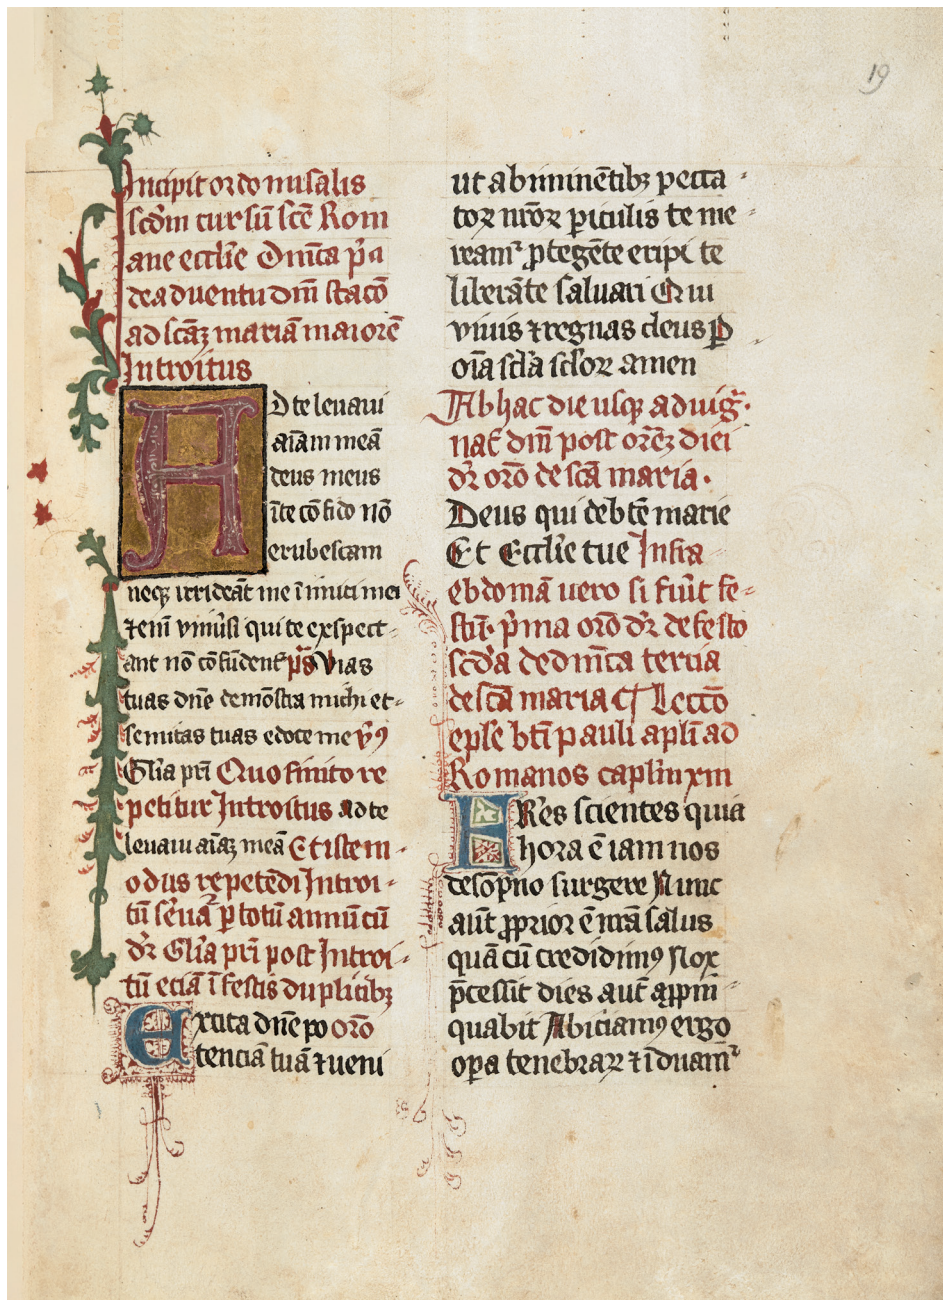 19
Incipit ordo misalis
scdm cursū scē Rom
ane ecclie Dnica pa
de aduentu dni stacō
ad scāꝫ mariā maiorē
Introitus
AD te leuaui
aīam meā
deus meus
ī te cōfido nō
erubescam
neqꝫ irrideāt me inimici mei
⁊ enī vniusi qui te exspect-
ant nō cōfūdent᷑ ps Vias
tuas dne demōstra michi et-
semitas tuas edoce me vꝰ
Glia pri Quo finito re
petitur Introitus Ad te
leuaui aīaꝫ meā Et iste m-
odus repetēdi Introi-
tū seruat᷑ ꝑ totū annū cū
dr Glia pri post Introi-
tū eciā ī festis duplicibꝫ
Excita dne po orō
tenciā tuā ⁊ ueni
ut ab iminētibꝫ pecca-
toꝝ nroꝝ piculis te me-
ream᷑ ꝓtegēte eripi te
liberāte saluari Qui
viuis ⁊ regnas deus ꝑ
oīa scla scloꝝ amen
Ab hac die usqꝫ ad uig̅.
nat dni post orēꝫ diei
dr orō de scā maria.
Deus qui de btē marie
Et Ecclie tue Infra
ebdomā uero si fūit fe-
stū. pma orō dr de festo
scda de dnica tercia
de scā maria ¶ Lectō
eple bti pauli apli ad
Romanos caplm xiii
FRes scientes quia
hora ē iam nos
de sōpno surgere Nunc
aūt ꝓprior ē nrā salus
quā cū credidimꝰ Nox
pcessit dies aut appin-
quabit Abiciamꝰ ergo
opa tenebraꝝ ⁊ īduam᷑